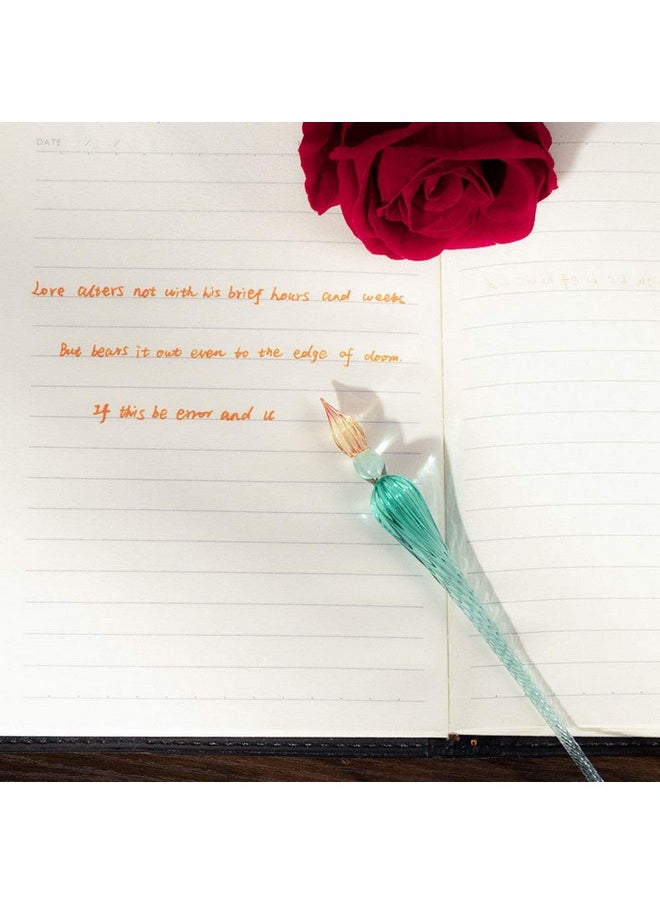 DATE / /
Love alters not with his brief hours and weeks
But bears it out even to the edge of doom.
If this be error and u